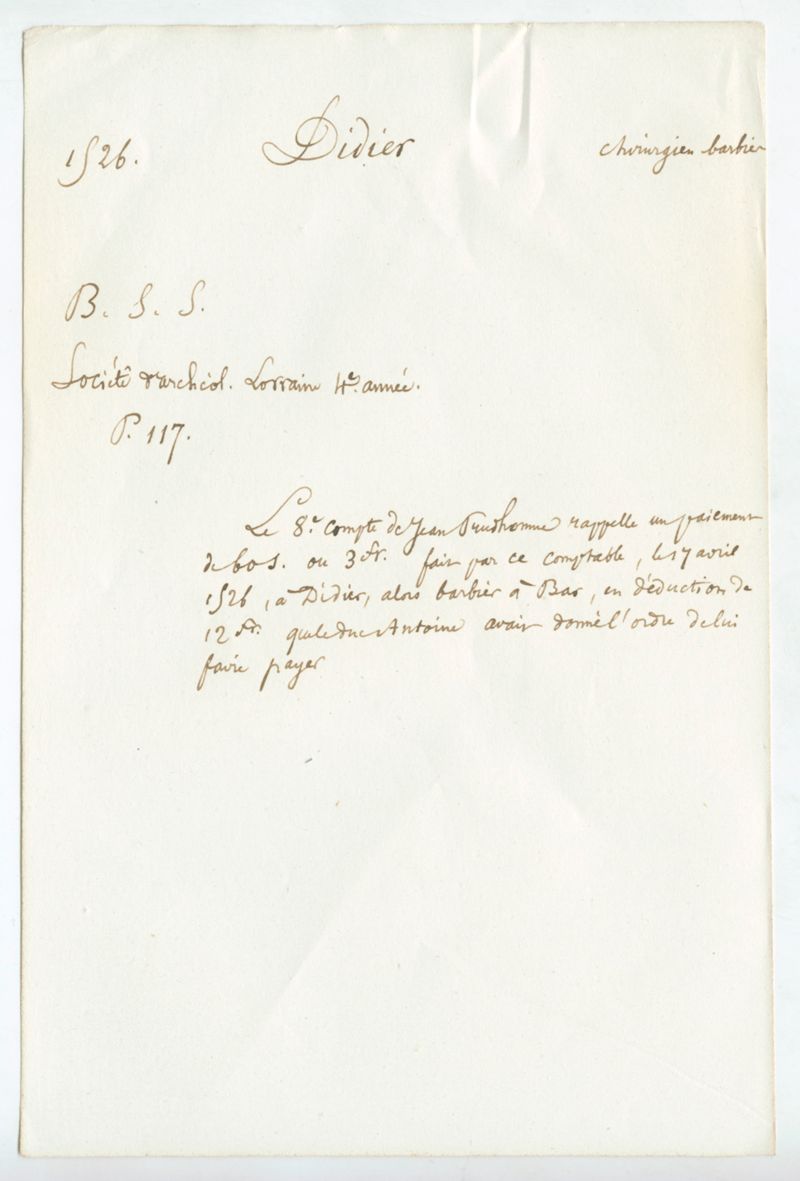 1526. Didier chirurgien barbier
B. S. S.
Société d'archéol. Lorraine 4e. année.
P. 117.
Le 8e. compte de Jean Prudhomme rappelle un paiement
de 60 s. ou 3 fr. fait par ce comptable, le 17 avril
1526, à Didier, alors barbier à Bar, en déduction de
12 fr. que le duc Antoine avait donné l'ordre de lui
faire payer